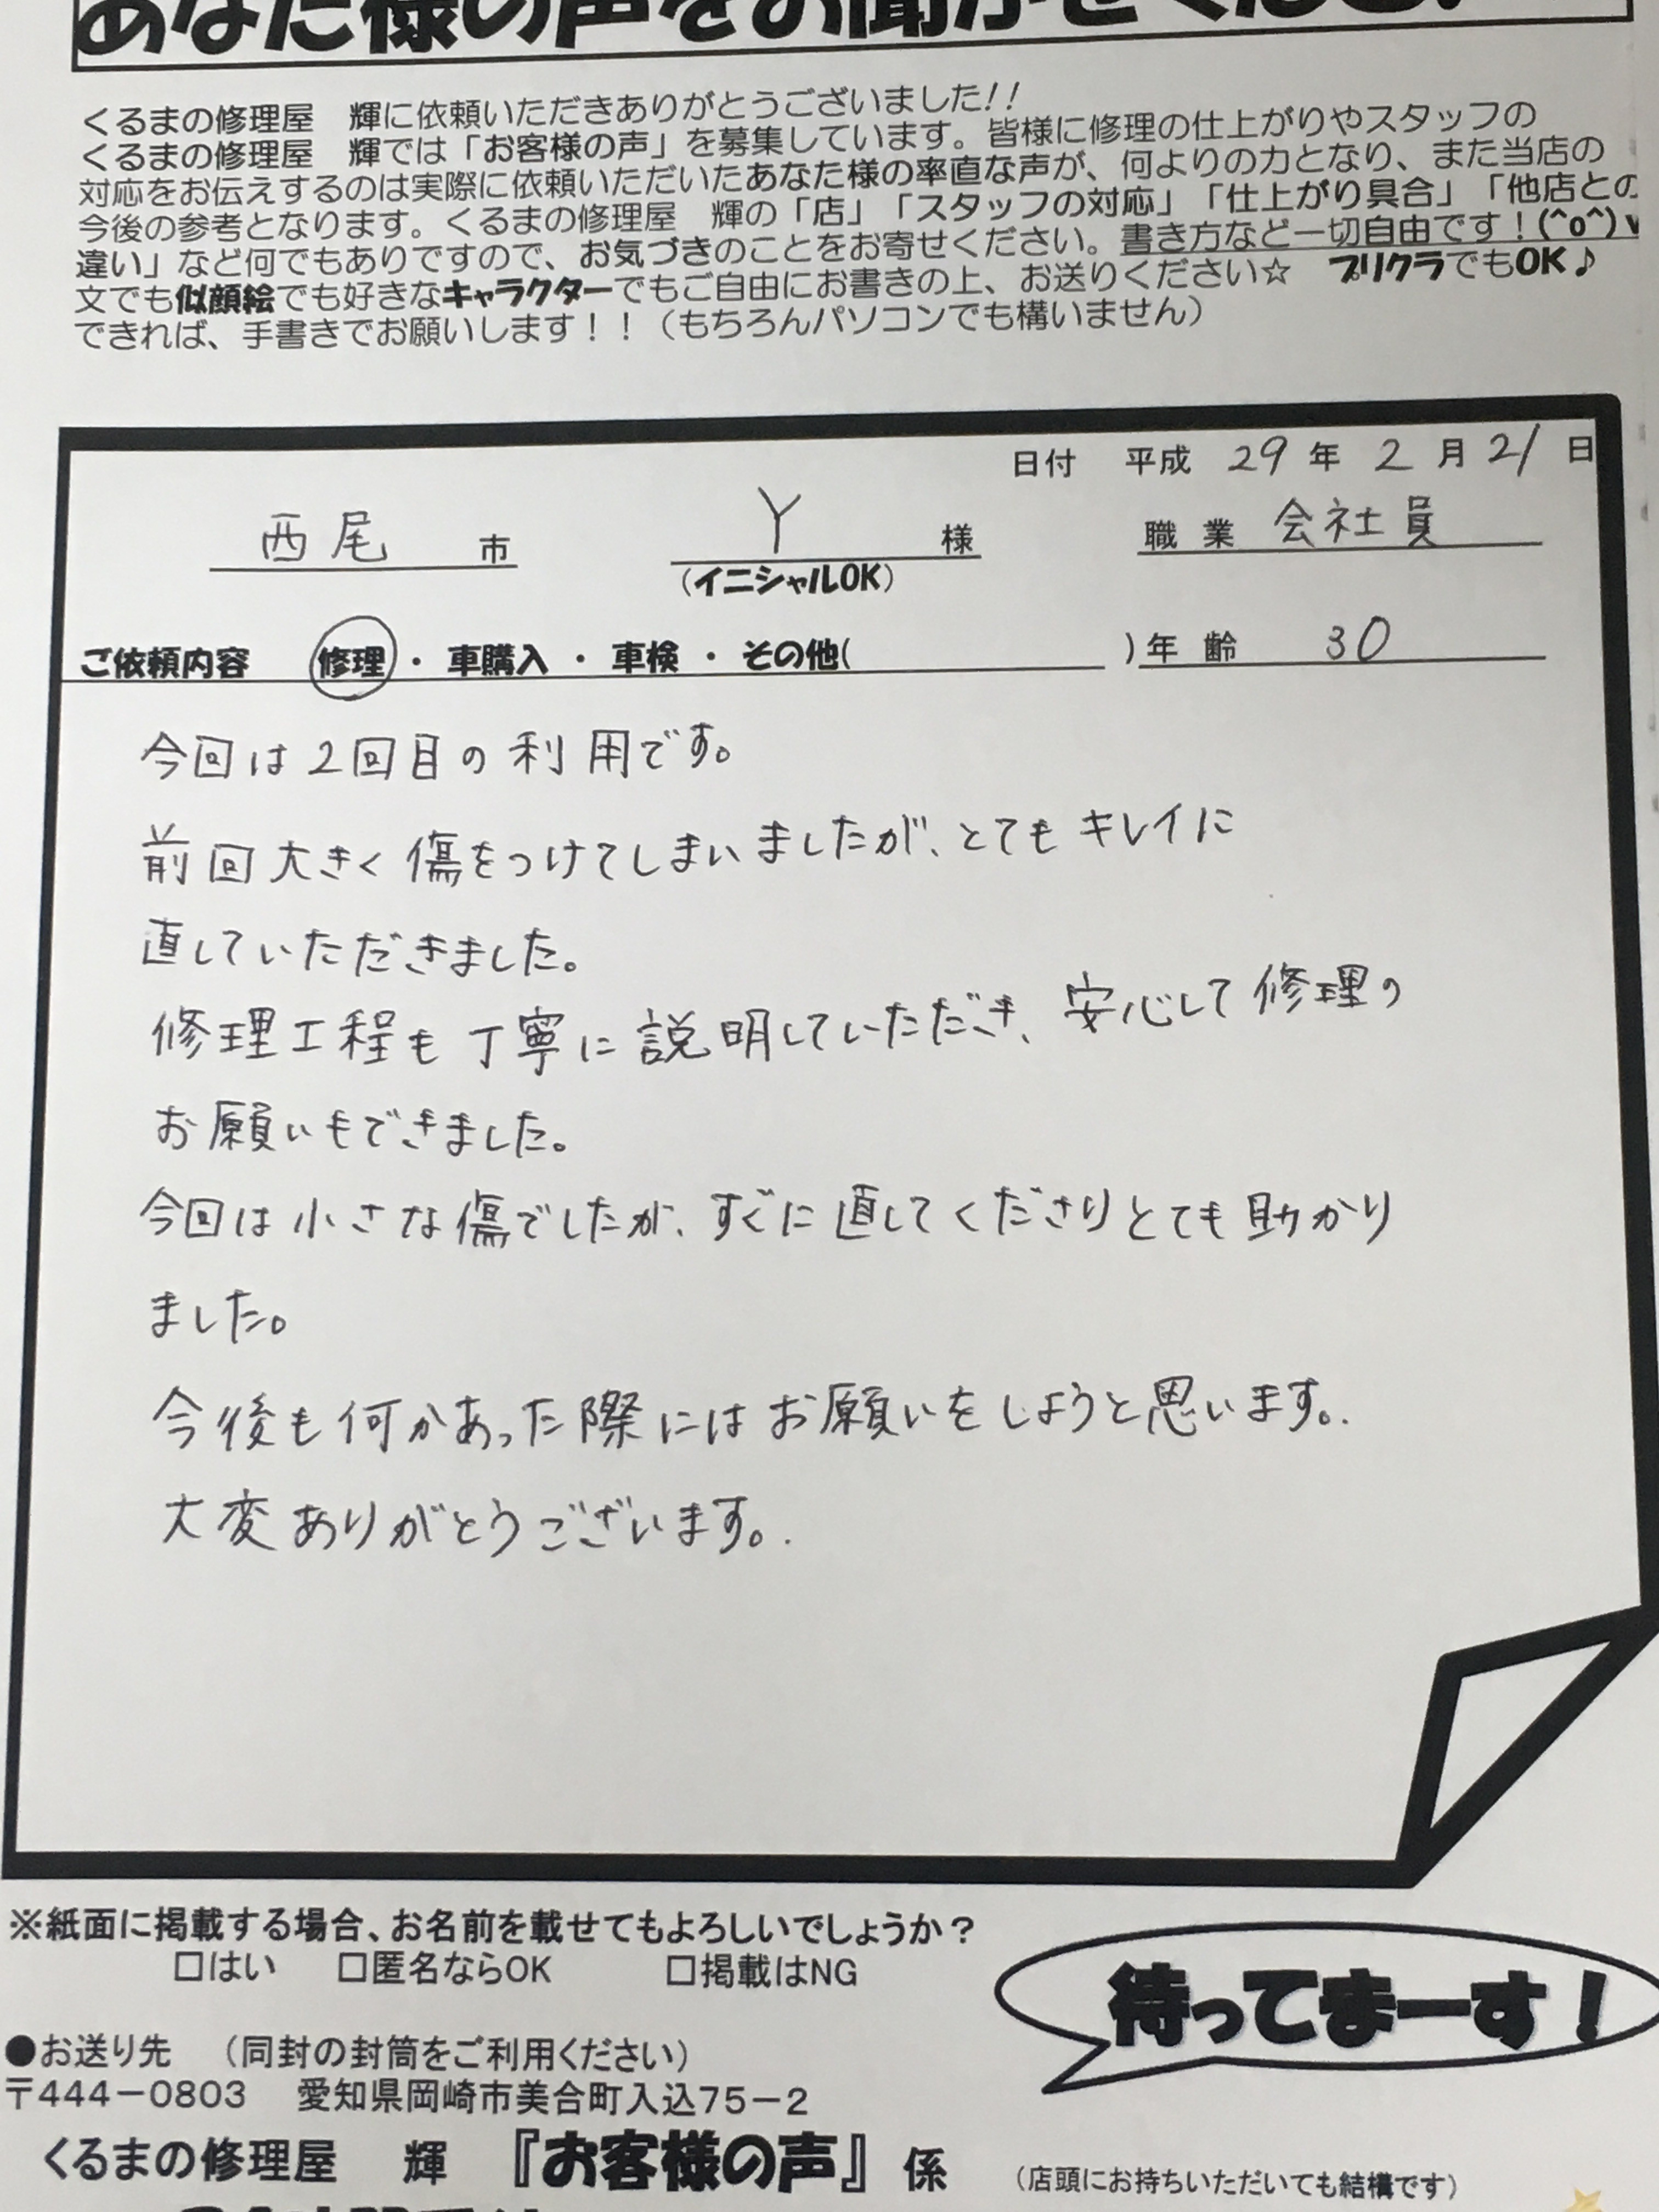 あなた様の声をお聞かせください!
くるまの修理屋　輝に依頼いただきありがとうございました!!
くるまの修理屋　輝では「お客様の声」を募集しています。皆様に修理の仕上がりやスタッフの
対応をお伝えするのは実際に依頼いただいたあなた様の率直な声が、何よりの力となり、また当店の
今後の参考となります。くるまの修理屋　輝の「店」「スタッフの対応」「仕上がり具合」「他店との
違い」など何でもありですので、お気づきのことをお寄せください。書き方など一切自由です！(^o^)v
文でも似顔絵でも好きなキャラクターでもご自由にお書きの上、お送りください☆　プリクラでもOK♪
できれば、手書きでお願いします！！（もちろんパソコンでも構いません）
日付　平成 29 年 2 月 21 日
西尾 市　Y 様　職業 会社員
（イニシャルOK）
ご依頼内容　修理・車購入・車検・その他(　)年齢 30
今回は2回目の利用です。
前回大きく傷をつけてしまいましたが、とてもキレイに
直していただきました。
修理工程も丁寧に説明していただき、安心して修理の
お願いもできました。
今回は小さな傷でしたが、すぐに直してくださりとても助かり
ました。
今後も何かあった際にはお願いをしようと思います。
大変ありがとうございます。
※紙面に掲載する場合、お名前を載せてもよろしいでしょうか？
□はい　□匿名ならOK　□掲載はNG
待ってまーす！
●お送り先　（同封の封筒をご利用ください）
〒444－0803　愛知県岡崎市美合町入込75－2
くるまの修理屋　輝　『お客様の声』係　（店頭にお持ちいただいても結構です）